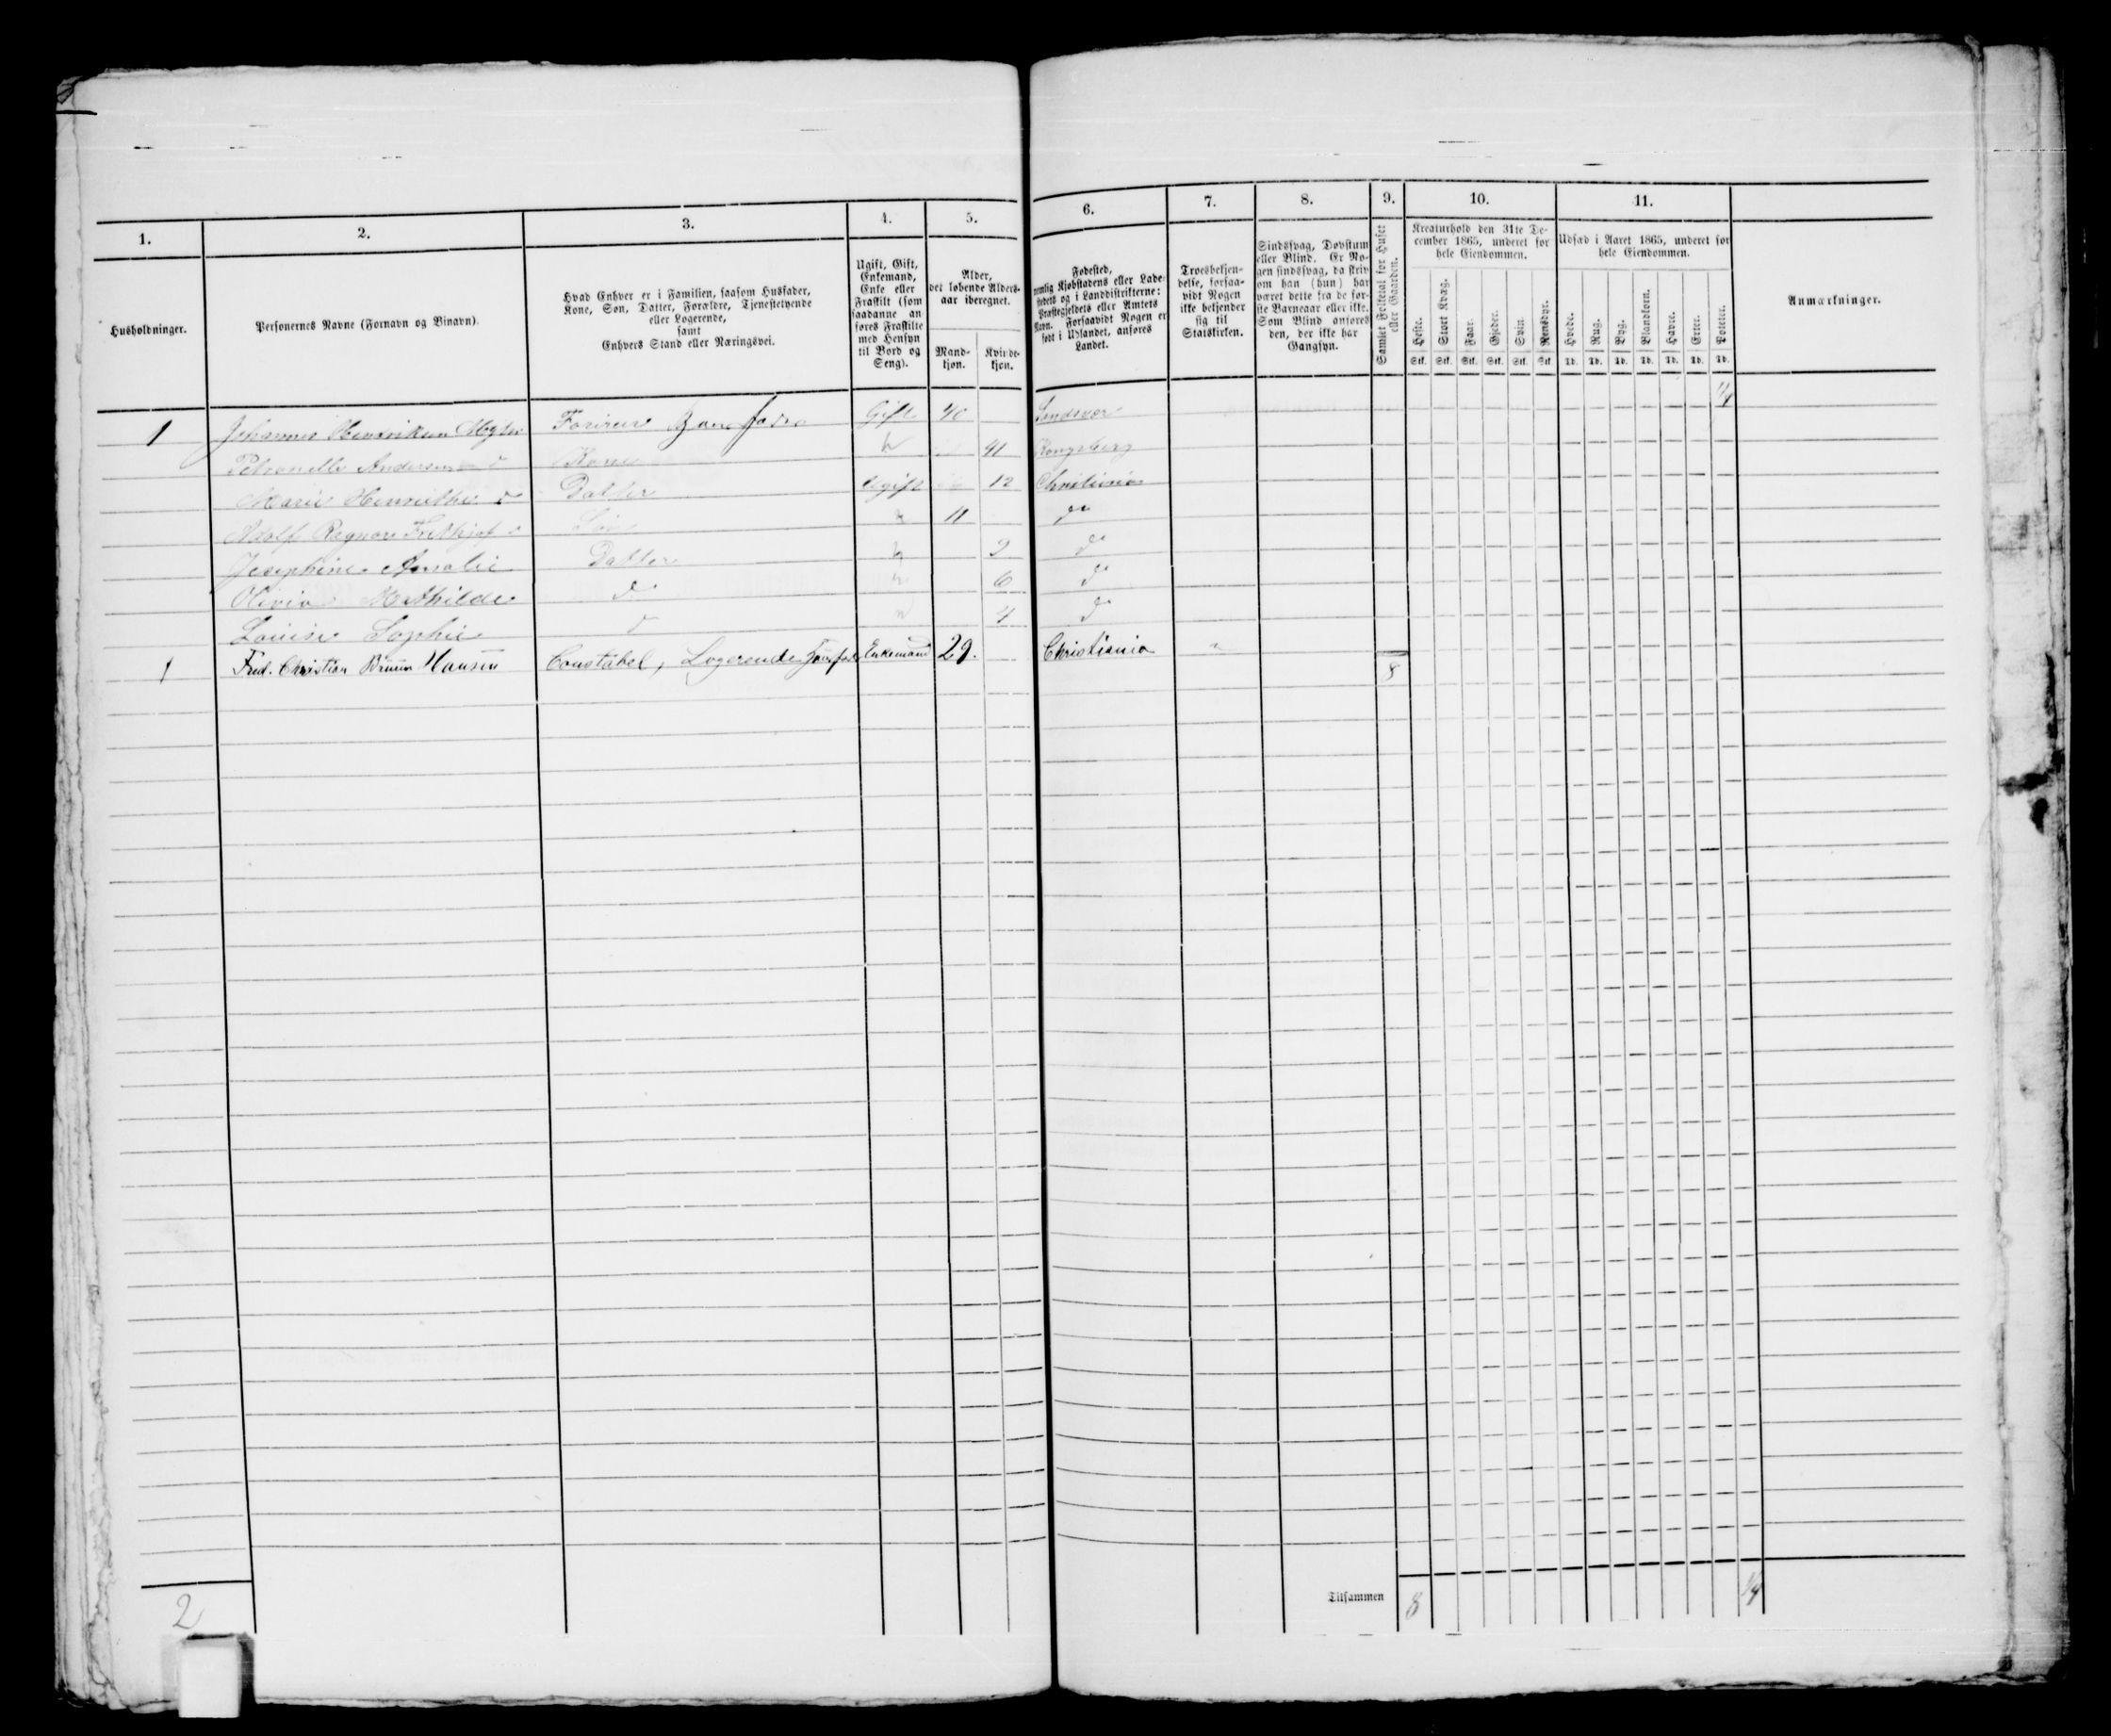 1. 2. 3. 4. 5. 6. 7. 8. 9. 10. 11.
Husholdninger.
Personernes Navne (Fornavn og Binavn).
Hvad Enhver er i Familien, saasom Husfader,
Kone, Søn, Datter, Forældre, Tjenestetyende
eller Logerende,
samt
Enhvers Stand eller Næringsvei.
Ugift, Gift,
Enkemand,
Enke eller
Fraskilt (som
saadanne an
føres Fraskilte
med Hensyn
til Bord og
Seng).
Alder,
det løbende Alders-
aar iberegnet.
Mand-
kjøn.
Kvinde-
kjøn.
Fødested,
nemlig Kjøbstadens eller Lade-
stedets og i Landdistrikterne:
Præstegjeldets eller Amtets
Navn. Forsaavidt Nogen er
født i Udlandet, anføres
Landet.
Troesbekjen-
delse, forsaa-
vidt Nogen
ikke bekjender
sig til
Statskirken.
Sindssvag, Døvstum
eller Blind. Er No-
gen sindssvag, da skriv
om han (hun) har
været dette fra de før-
ste Barneaar eller ikke.
Som Blind anføres
den, der ikke har
Gangsyn.
Samlet Folketal for Huset
eller Gaarden.
Kreaturhold den 31te De-
cember 1865, underet for
hele Eiendommen.
Heste. Stort Kvæg. Faar. Gjeder. Svin. Rensdyr.
Stk. Stk. Stk. Stk. Stk. Stk.
Udsæd i Aaret 1865, underet for
hele Eiendommen.
Hvede. Rug. Byg. Blandkorn. Havre. Erter. Poteter.
Td. Td. Td. Td. Td. Td. Td.
Anmærkninger.
1 Johannes Henriksen Gift 40
Petronelle Andersen Kone 41 Kongsberg
Marie Henriethe do Datter Ugift 12 Christiania
Adolf Ragnor Frithjof do Søn 11 do
Josephine Amalie Datter 9 do
Olivia Mathilde do 6 do
Louise Sophie do 4 do
1 Fred. Christian Bruun Hansen Constabel, Logerende Enkemand 29. Christiania
8
2 Tilsammen 8